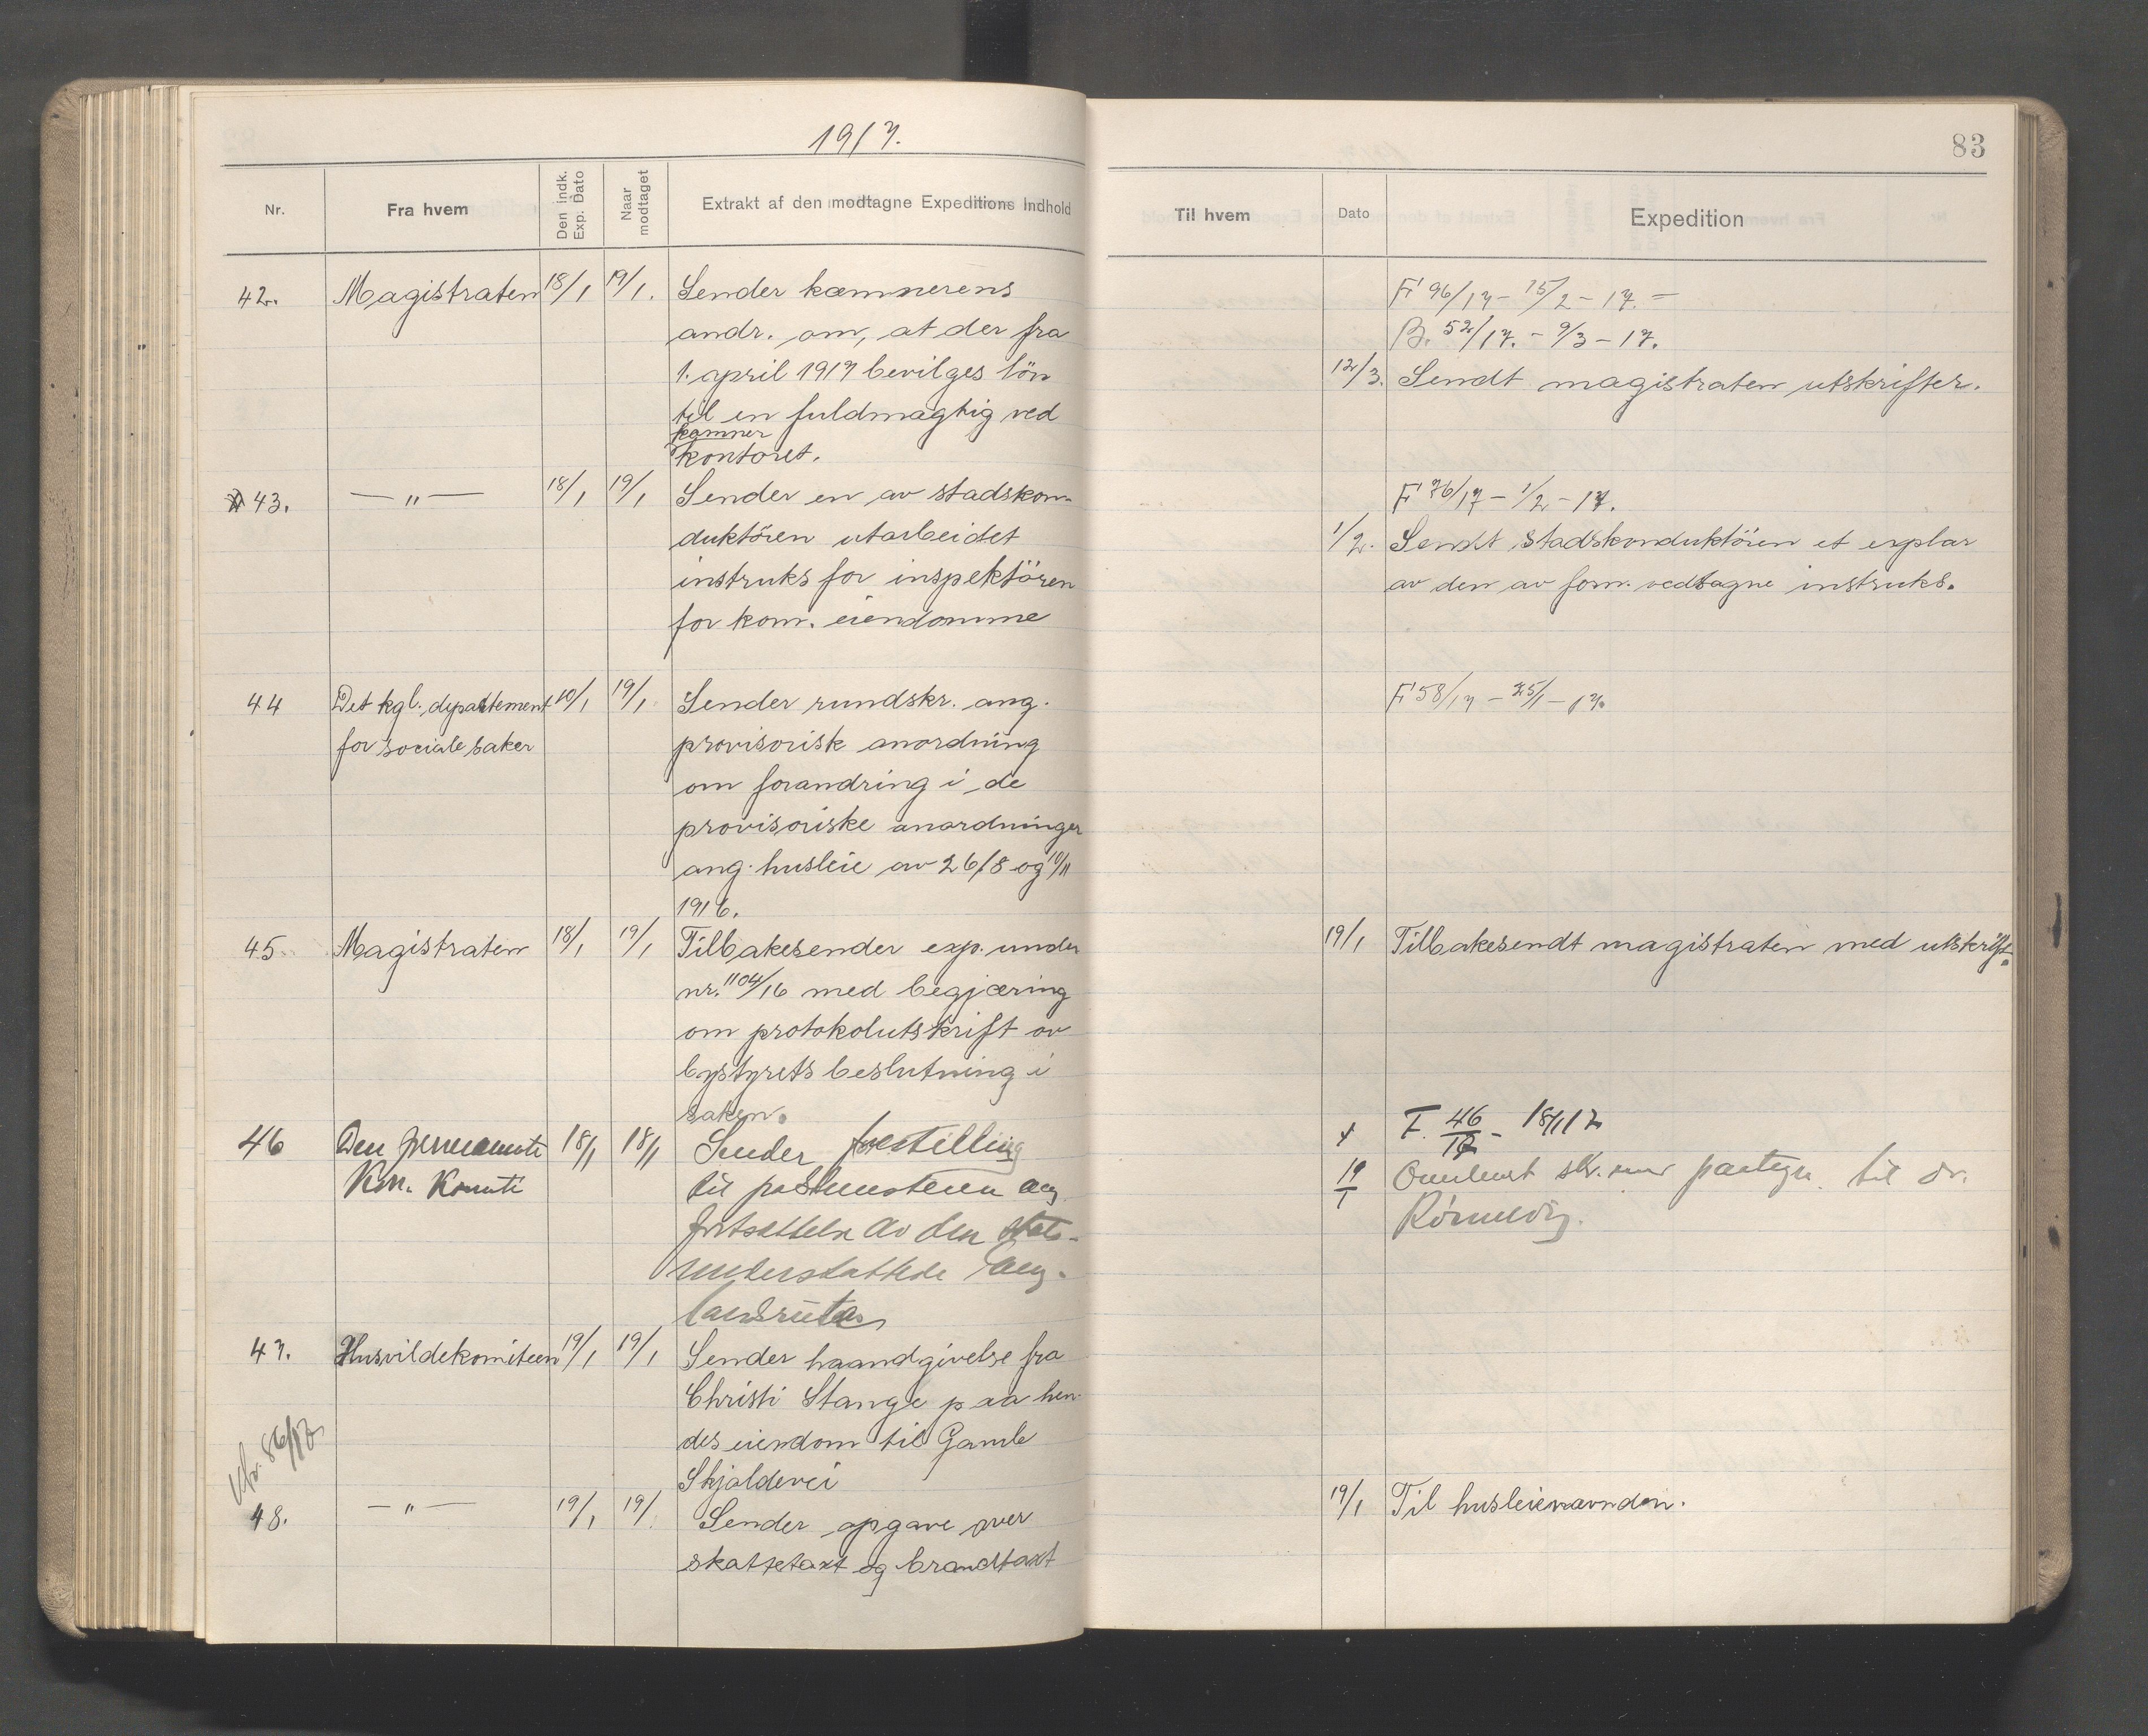 1917.
83
Nr.
Fra hvem
Den indk. Exp. Dato
Naar modtaget
Extrakt af den modtagne Expeditions Indhold
Til hvem
Dato
Expedition
42. Magistraten 18/1 19/1. Sender kæmnerens
andr. om, at der fra
1. april 1917 bevilges løn
til en fuldmægtig ved
kæmner
kontoret.
F 96/17 – 15/2 – 17. –
B. 52/17. – 9/3 – 17.
12/3. Sendt magistraten utskrifter.
43. — " — 18/1 19/1 Sender en av stadskon-
duktören utarbeidet
instruks for inspektören
for kom. eiendomme
F 76/17 – 1/2 – 17.
1/2. Sendt stadskonduktören et explar
av den av form. vedtagne instruks.
44 Det kgl. departement 10/1 19/1 Sender rundskr. ang.
for sociale saker provisorisk anordning
om forandring i de
provisoriske anordninger
ang. husleie av 26/8 og 10/11
1916.
F 58/17 – 25/1 – 17.
45. Magistraten 18/1 19/1 Tilbakesender exp. under
nr. 1104/16 med begjæring
om protokolutskrift av
bystyrets beslutning i
saken.
19/1 Tilbakesendt magistraten med utskrift.
46 Den permanente 18/1 18/1 Sender forestilling
Kom. Komite til postmesteren ang
fortsættelse av den stats-
understøttede
F. 46/17 – 18/1 17
19/1 paategn. til
47. Husvildekomiteen 19/1 19/1 Sender haandgivelse fra
Christi Stange paa hen-
des eiendom til Gamle
Skjoldevei
Nr. 86/17
48. — " — 19/1 19/1 Sender opgave over
skattetaxt og brandtaxt
19/1 Til husleienævnden.